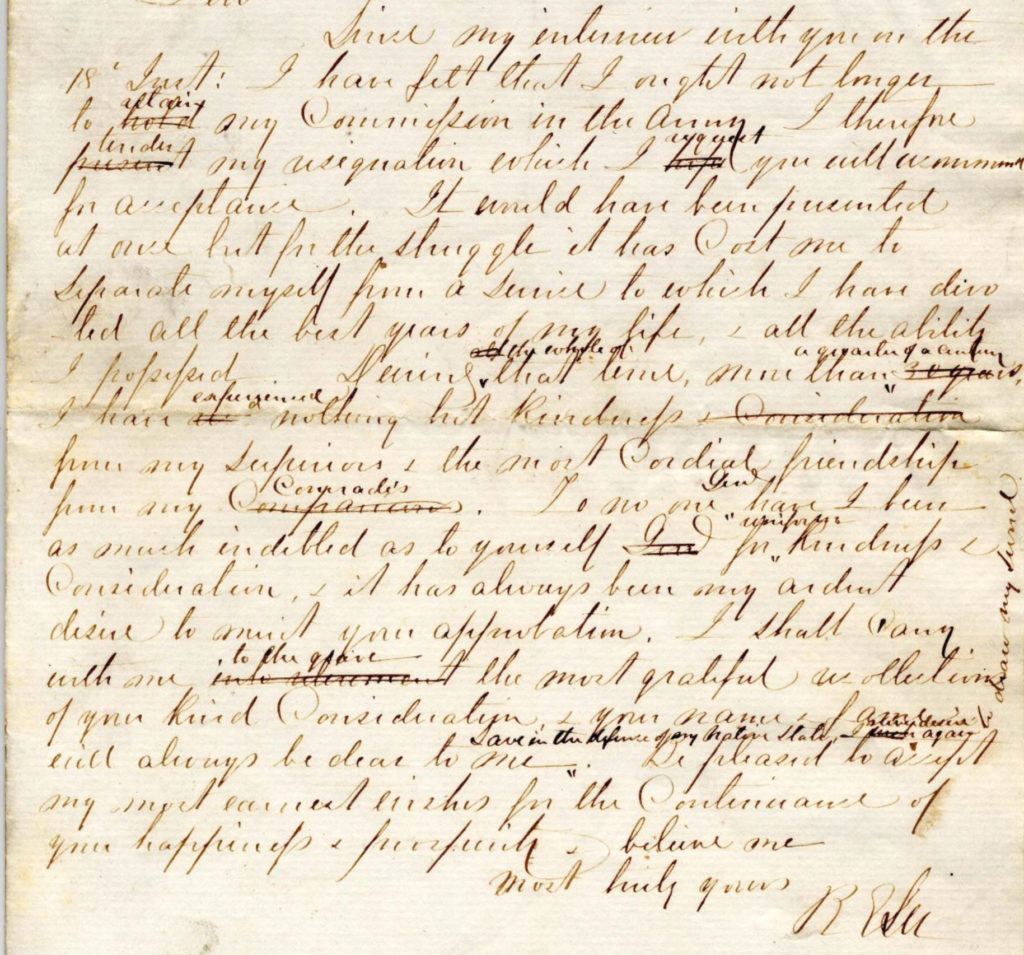 Since my interview with you on the
18' Inst: I have felt that I ought not longer
to hold retain my Commission in the Army. I therefore
present tender my resignation which I hope request you will recommend
for acceptance. It would have been presented
at once but for the struggle it has Cost me to
separate myself from a service to which I have devo
-ted all the best years of my life, & all the ability
I possessed. During all the whole of that time, more than 30 years a quarter of a century,
I have experienced nothing but kindness & Consideration
from my superiors & the most Cordial friendship
from my Companions Comrades. To no one Genl have I been
as much indebted as to yourself Genl for uniform kindness &
Consideration, & it has always been my ardent
desire to merit your approbation. I shall Carry
with me into retirement to the grave the most grateful recollections
of your kind Consideration, & your name & fame
will always be dear to me. Save in the defence of my native State, I never desire again to draw my sword. Be pleased to accept
my most earnest wishes for the Continuance of
your happiness & prosperity & believe me
most truly yours
R E Lee